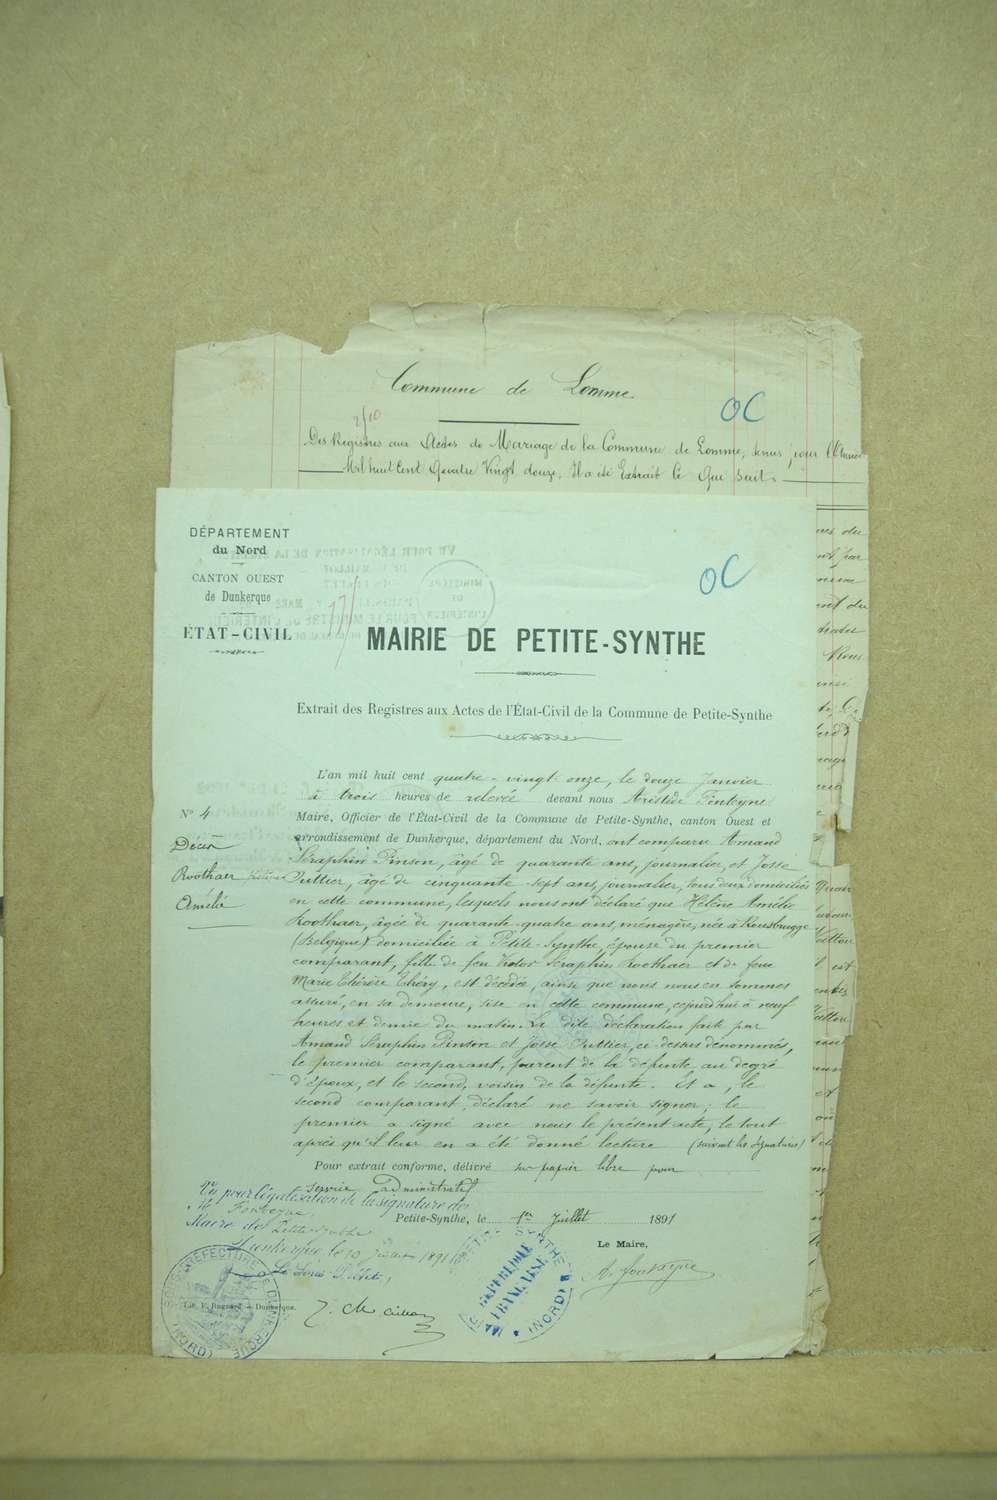 Commune de Lomme
OC
2/10
Des Registres aux Actes de Mariage de la Commune de Lomme, tenus pour l'Année
Mil huit Cent Quatre Vingt douze, Il a été Extrait Ce Qui Suit.
DÉPARTEMENT
du Nord
CANTON OUEST
de Dunkerque
ÉTAT-CIVIL
OC
MAIRIE DE PETITE-SYNTHE
Extrait des Registres aux Actes de l'État-Civil de la Commune de Petite-Synthe
N° 4
Décès
Roothaer Hélène
Amélie
L'an mil huit cent quatre-vingt-onze, le douze Janvier
à trois heures de relevée devant nous Aristide
Maire, Officier de l'État-Civil de la Commune de Petite-Synthe, canton Ouest et
arrondissement de Dunkerque, département du Nord, ont comparu Amand
Séraphin Pinson, âgé de quarante ans, journalier, et Josse
âgé de cinquante-sept ans, journalier, tous deux domiciliés
en cette commune, lesquels nous ont déclaré que Hélène Amélie
Roothaer, âgée de quarante-quatre ans, ménagère, née à Rousbrugge
(Belgique) domiciliée à Petite-Synthe, épouse du premier
comparant, fille de feu Victor Séraphin Roothaer et de feue
Marie Thérèse Théry, est décédée, ainsi que nous nous en sommes
assuré, en sa demeure, sise en cette commune, cejourd'hui à neuf
heures et demie du matin. La dite déclaration faite par
Amand Séraphin Pinson et Josse ci-dessus dénommés,
le premier comparant, parent de la défunte au degré
d'époux, et le second, voisin de la défunte. Et a, le
second comparant, déclaré ne savoir signer; le
premier a signé avec nous le présent acte, le tout
après qu'il leur en a été donné lecture (suivent les signatures)
Pour extrait conforme, délivré sur papier libre pour
service administratif
Petite-Synthe, le 1er Juillet 1891
Le Maire,
Vu pour légalisation de la signature de
M.
Maire de Petite-Synthe
Dunkerque, le 10 Juillet 1891
Le Sous-Préfet,
SOUS-PRÉFECTURE DE DUNKERQUE
(NORD)
MAIRIE DE PETITE SYNTHE
RÉPUBLIQUE
FRANÇAISE
(NORD)